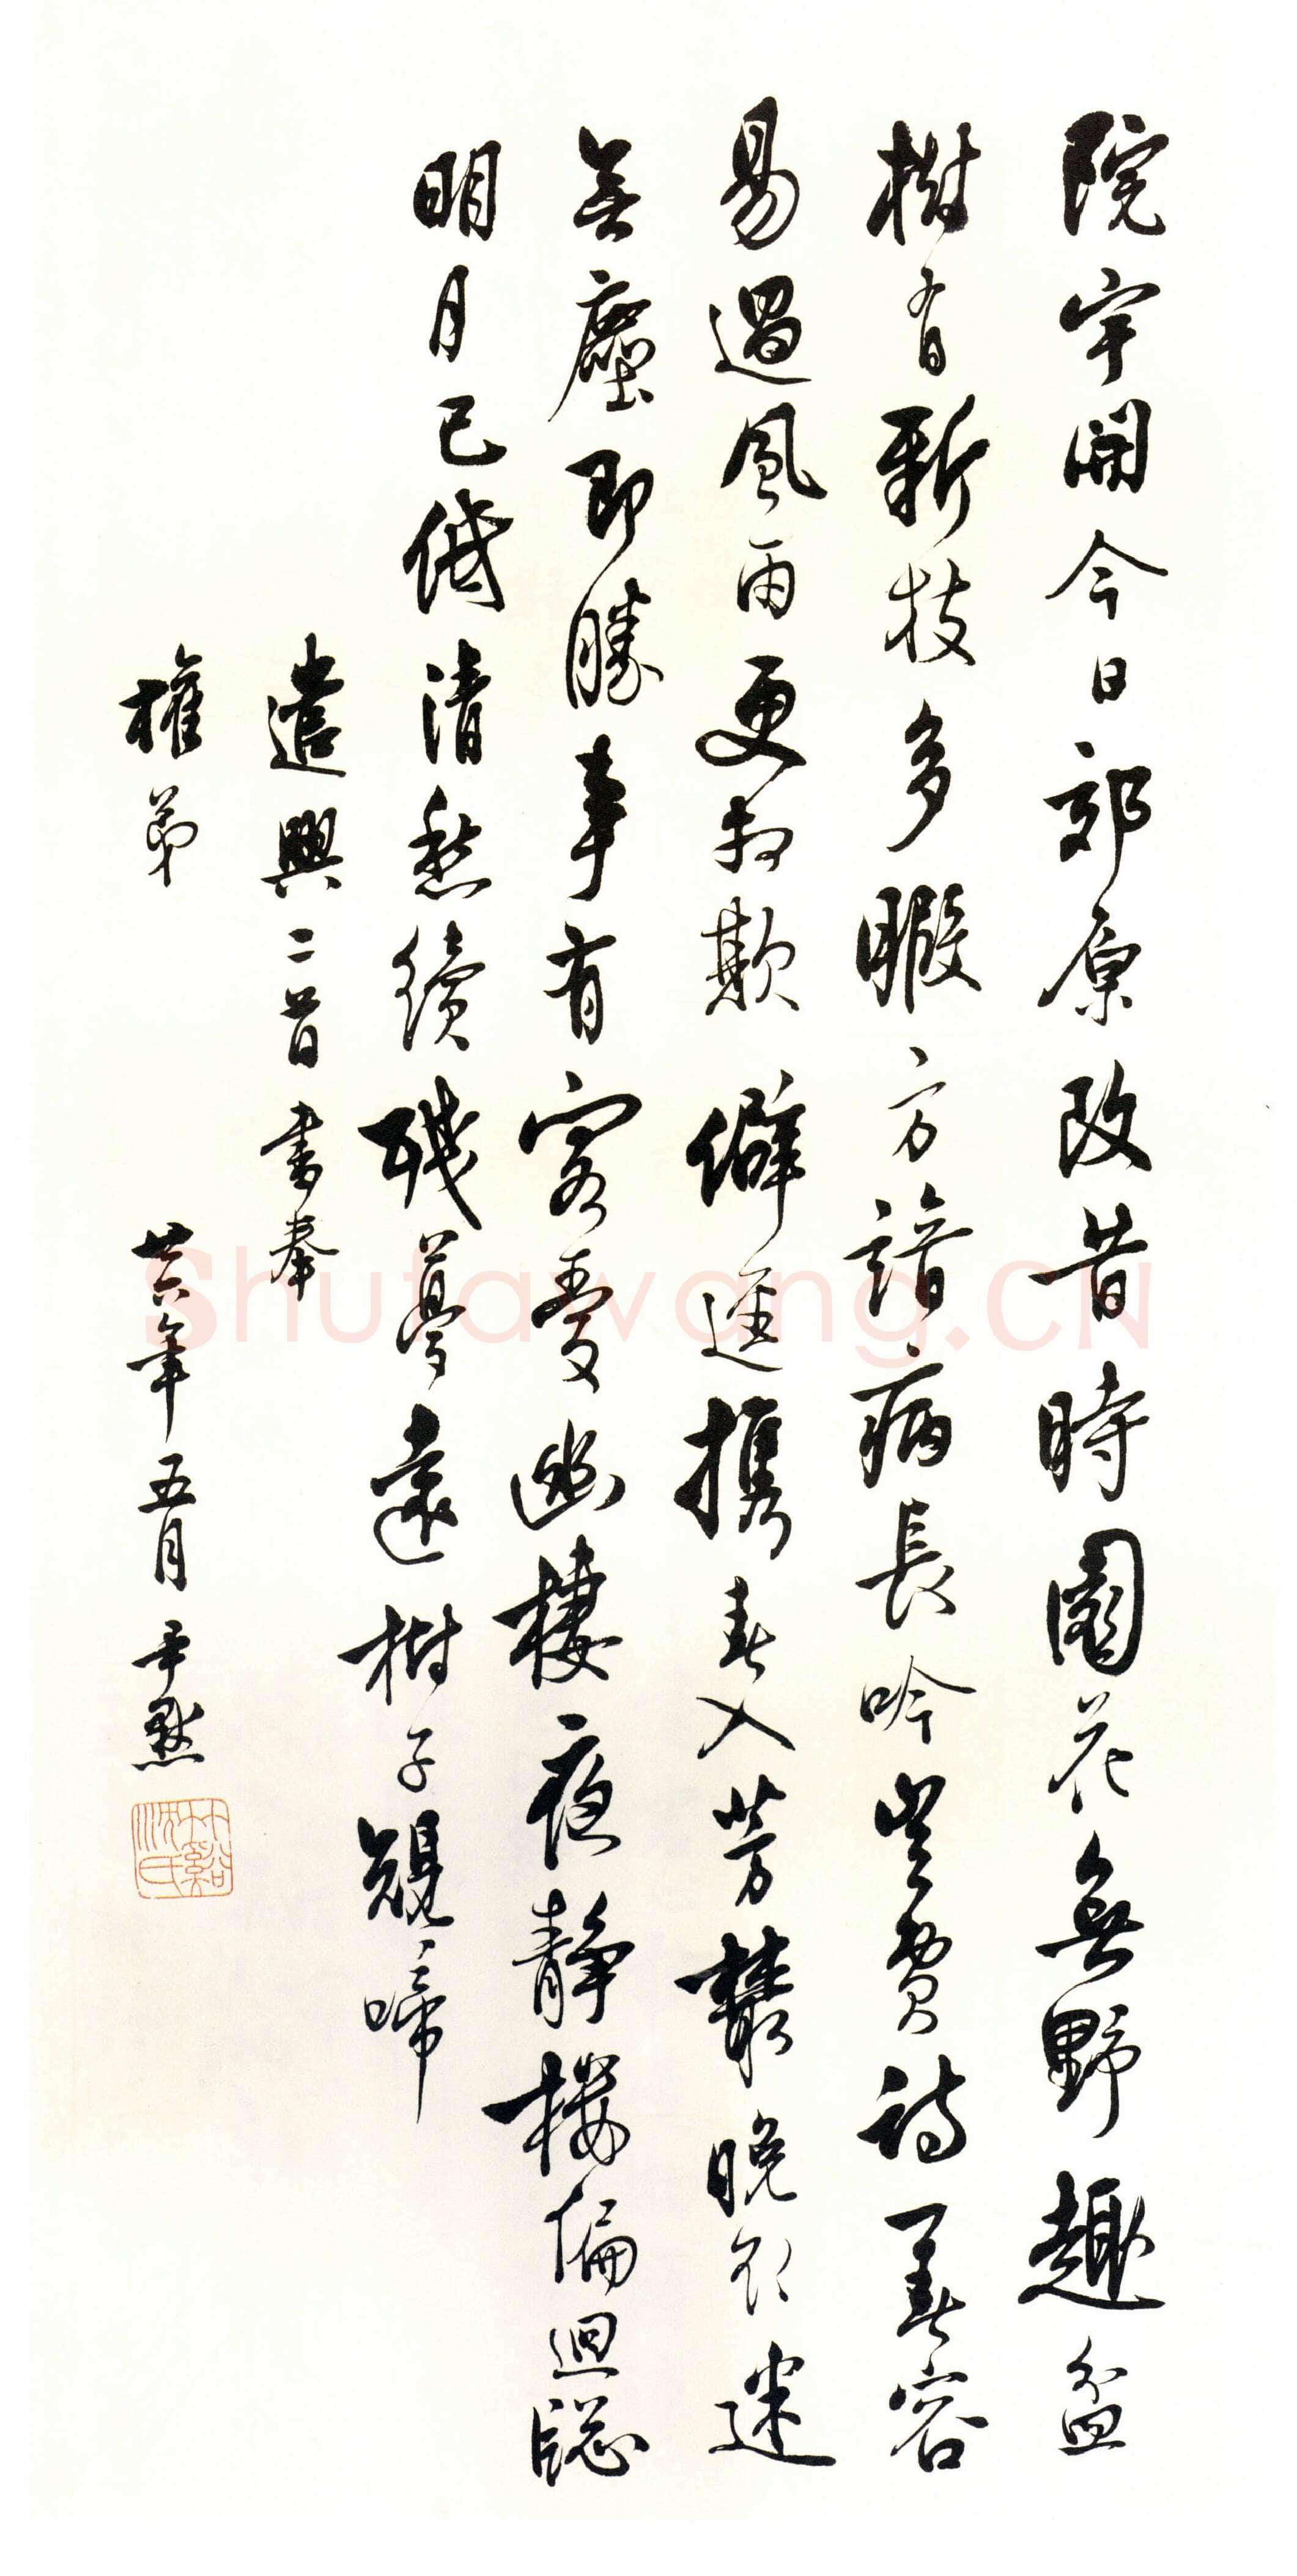 院宇開今日郊原改昔時園花無野趣盆
樹有新枝多暇方諳病長吟豈費詩春容
易過風雨更相欺僻逕攜春入芳叢晚欲迷
無塵即勝事有客愛幽棲夜靜樓偏迥牕
明月已低清愁續殘夢遠樹子規啼
遣興二首書奉
權弟 廿六年五月 尹默
竹谿沈氏
Shufawang.CN